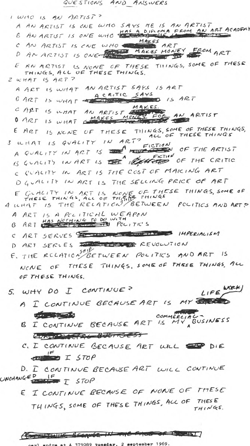 QUESTIONS AND ANSWERS
1. WHO IS AN ARTIST?
A AN ARTIST IS ONE WHO SAYS HE IS AN ARTIST
B AN ARTIST IS ONE WHO HAS A DIPLOMA FROM AN ART ACADEMY
C AN ARTIST IS ONE WHO MAKES ART
D AN ARTIST IS ONE WHO MAKES MONEY FROM ART
E AN ARTIST IS NONE OF THESE THINGS, SOME OF THESE
THINGS, ALL OF THESE THINGS.
2. WHAT IS ART?
A ART IS WHAT AN ARTIST SAYS IS ART
B ART IS WHAT A CRITIC SAYS IS ART
C ART IS WHAT AN ARTIST MAKES
D ART IS WHAT MAKES MONEY FOR AN ARTIST
E ART IS NONE OF THESE THINGS, SOME OF THESE THINGS,
ALL OF THESE THINGS
3. WHAT IS QUALITY IN ART?
A QUALITY IN ART IS FICTION OF THE ARTIST
B QUALITY IN ART IS FICTION OF THE CRITIC
C QUALITY IN ART IS THE COST OF MAKING ART
D QUALITY IN ART IS THE SELLING PRICE OF ART
E QUALITY IN ART IS NONE OF THESE THINGS, SOME OF
THESE THINGS, ALL OF THESE THINGS
4. WHAT IS THE RELATION BETWEEN POLITICS AND ART?
A ART IS A POLITICAL WEAPON
B ART HAS NOTHING TO DO WITH
C ART SERVES IMPERIALISM
D ART SERVES REVOLUTION
E. THE RELATION BETWEEN POLITICS AND ART IS
NONE OF THESE THINGS, SOME OF THESE THINGS, ALL
OF THESE THINGS.
5. WHY DO I CONTINUE?
A I CONTINUE BECAUSE ART IS MY LIFE WORK
B I CONTINUE BECAUSE ART IS MY COMMERCIAL BUSINESS
C. I CONTINUE BECAUSE ART WILL DIE
IF I STOP
D. I CONTINUE BECAUSE ART WILL CONTINUE
UNCHANGED IF I STOP
E I CONTINUE BECAUSE OF NONE OF THESE
THINGS, SOME OF THESE THINGS, ALL OF THESE
THINGS.
Tuesday, 2 september